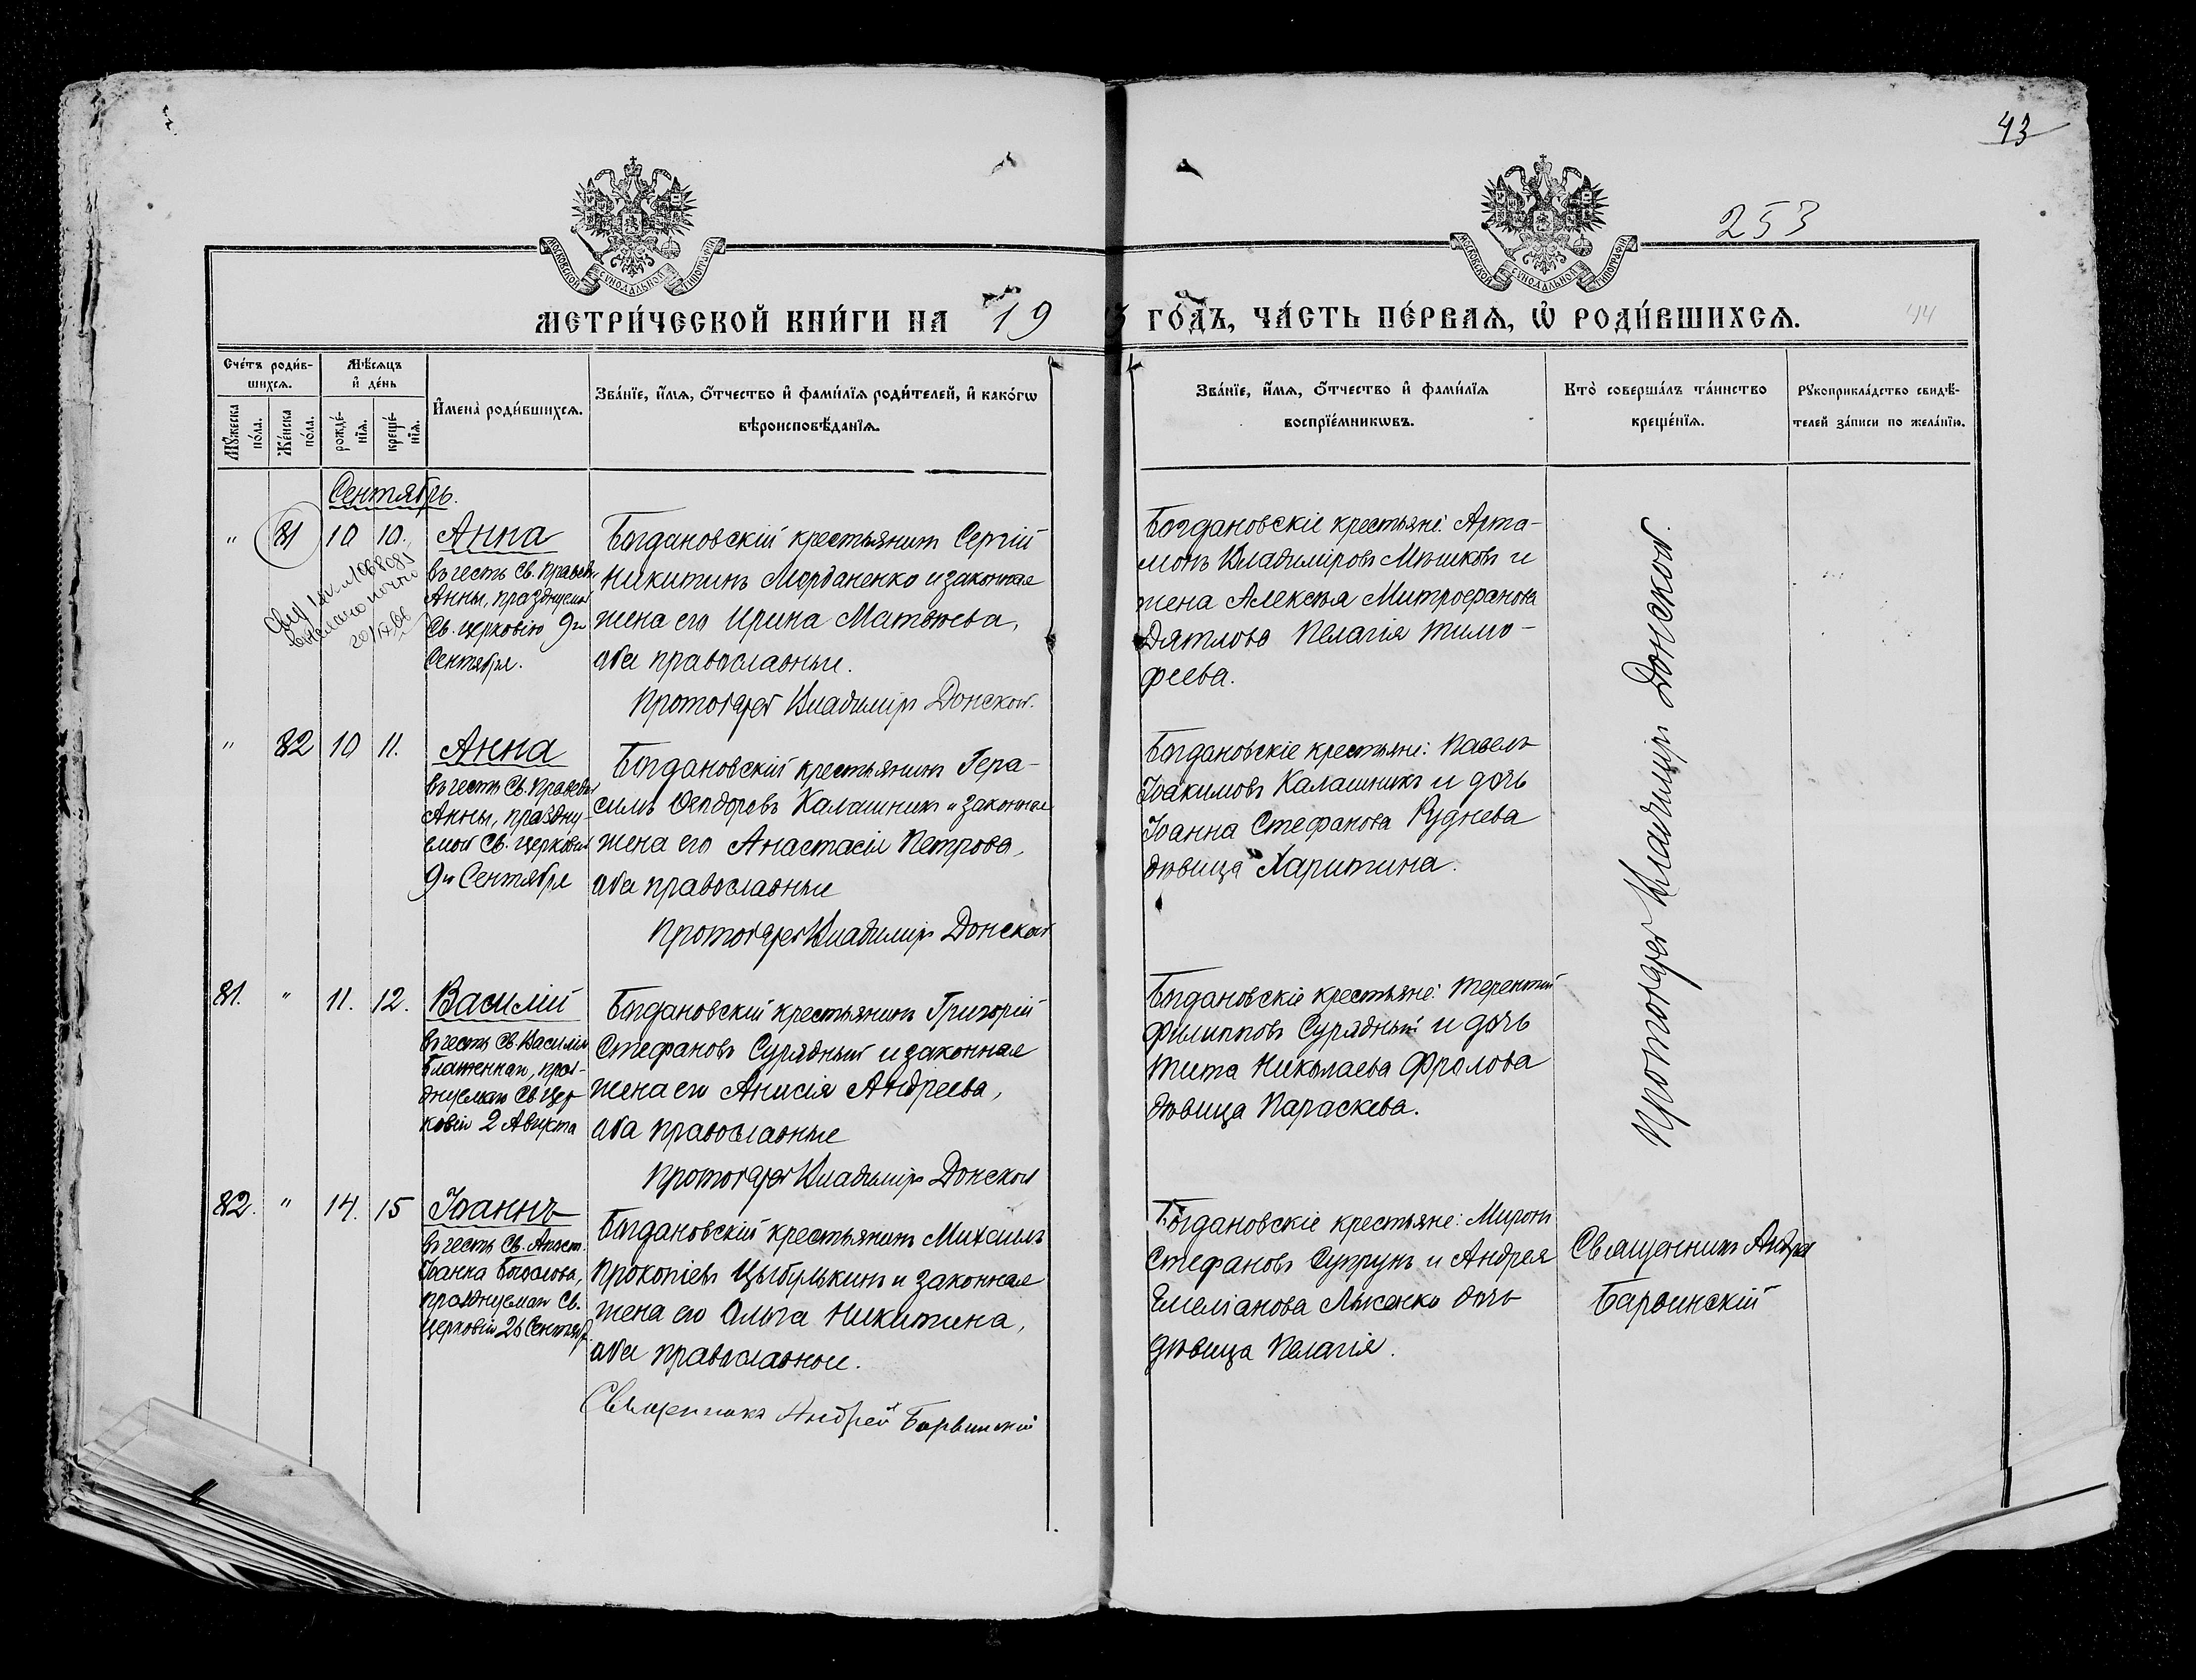 43
253
МОСКОВСКОЙ СѴНОДАЛЬНОЙ ТИПОГРАФІИ
МОСКОВСКОЙ СѴНОДАЛЬНОЙ ТИПОГРАФІИ
МЕТРИ́ЧЕСКОЙ КНИ́ГИ НА 19
ГО́ДЪ, ЧА́СТЬ ПЕ́РВАѦ, Ѡ҆ РОДИ́ВШИХСѦ.
44
Сче́тъ роди́в-
шихсѧ.
Мѣ́сѧцъ
и҆ де́нь
Мꙋ́жеска
по́ла.
Же́нска
по́ла.
рожде́-
нїѧ.
креще́-
нїѧ.
И҆мена̀ роди́вшихсѧ.
Зва́нїе, и҆́мѧ, ѻ҆́тчество и҆ фами́лїѧ роди́телей, и҆ како́гѡ
вѣроисповѣ́данїѧ.
Зва́нїе, и҆́мѧ, ѻ҆́тчество и҆ фами́лїѧ
воспрїе́мникѡвъ.
Кто̀ соверша́лъ та́инство
креще́нїѧ.
Рꙋкоприкла́дство свидѣ́-
телей за́писи по жела́нїю.
Сентябрь.
" 81 10 10. Анна
въ честь Св. Правед.
Анны, празднуемой
Св. церковію 9го
Сентября.
Богдановскій крестьянинъ Сергій
Никитинъ Морданенко и законная
жена его Ирина Матвѣева,
оба православные.
Протоіерей Владимiръ Донской.
Богдановскіе крестьяне: Арта-
монъ Владиміровъ Мѣшковъ и
жена Алексѣя Митрофанова
Дятлова Пелагія Тимо-
феева.
Протоіерей Владиміръ Донской.
" 82 10 11. Анна
въ честь Св. Правед.
Анны, праздну-
емой Св. церковію
9го Сентября
Богдановскій крестьянинъ Гера-
симъ Ѳеодоровъ Калашникъ и законная
жена его Анастасія Петрова,
оба православные
Протоіерей Владиміръ Донской
Богдановскіе крестьяне: Павелъ
Іоакимовъ Калашникъ и дочь
Іоанна Стефанова Руднева
дѣвица Харитина.
81. " 11. 12. Василій
въ честь Св. Василія
Блаженнаго, праз-
днуемаго Св. цер-
ковію 2 Августа
Богдановскій крестьянинъ Григорій
Стефановъ Сурядный и законная
жена его Анисія Андреева,
оба православные
Протоіерей Владиміръ Донской
Богдановскіе крестьяне: Терентій
Филипповъ Сурядный и дочь
Тита Николаева Фролова
дѣвица Параскева.
82. " 14. 15 Іоаннъ
въ честь Св. Апост.
Іоанна Богослова,
празднуемаго Св.
церковію 26 Сентяб.
Богдановскій крестьянинъ Михаилъ
Прокопіевъ Цыбулькинъ и законная
жена его Ольга Никитина,
оба православные.
Священникъ Андрей Барвинскій
Богдановскіе крестьяне: Миронъ
Стефановъ Супрунъ и Андрея
Емеліанова Лысенко дочь
дѣвица Пелагія.
Священникъ Андрей
Барвинскій